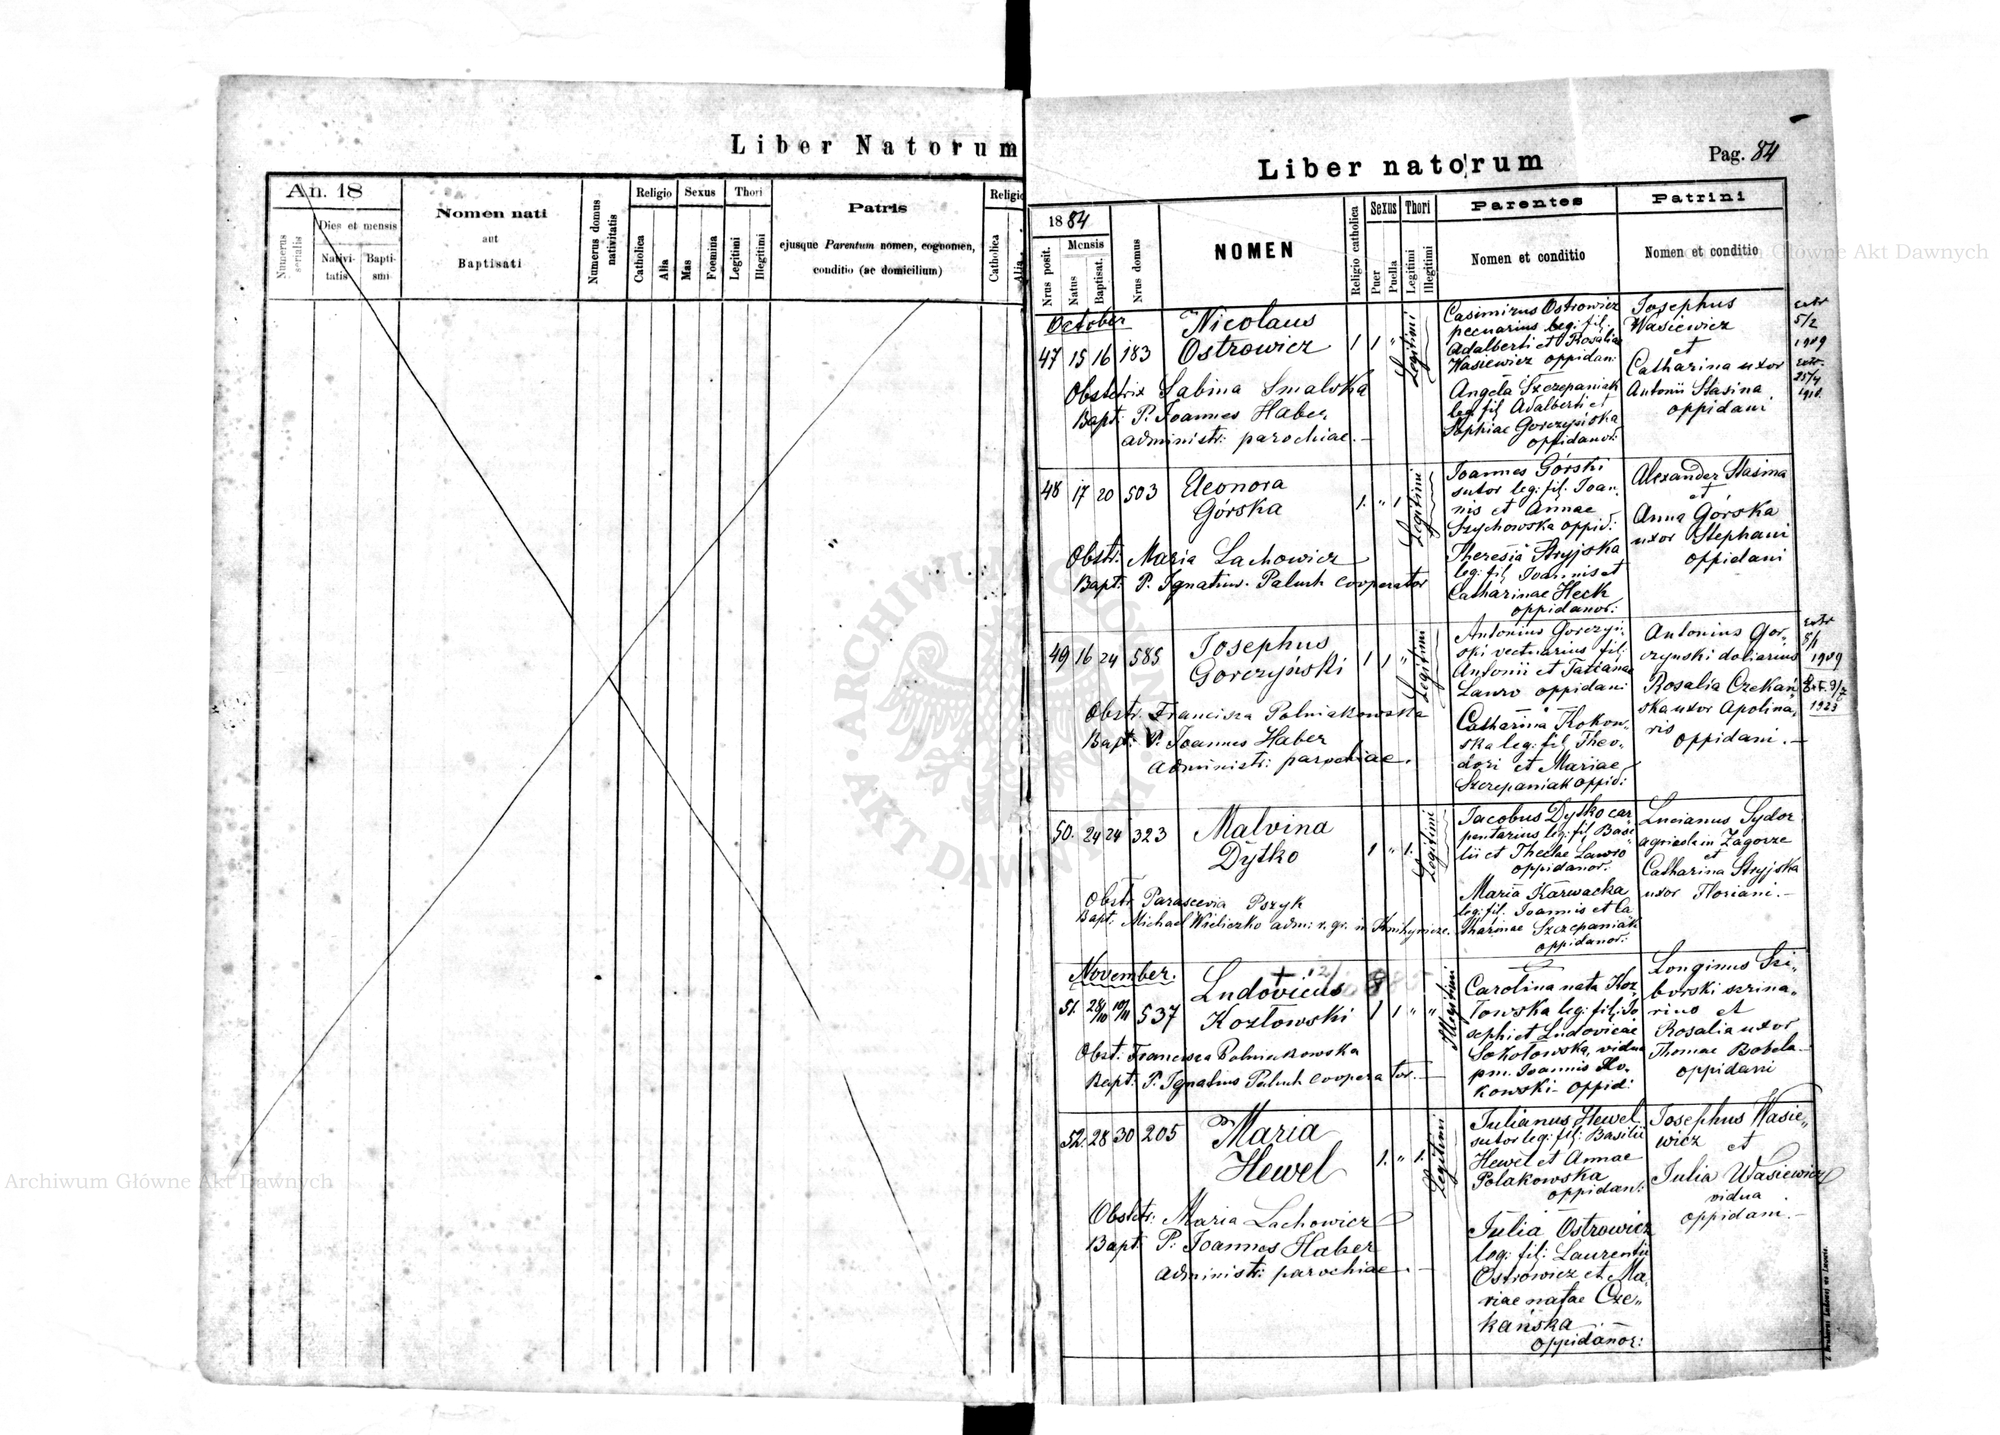 Liber Natorum
An. 18
Numerus serialis
Dies et mensis
Nativitatis
Baptismi
Nomen nati
aut
Baptisati
Numerus domus nativitatis
Religio
Catholica
Alia
Sexus
Mas
Foemina
Thori
Legitimi
Illegitimi
Patris
ejusque Parentum nomen, cognomen,
conditio (ac domicilium)
Religio
Catholica
Alia
Liber natorum
Pag. 84
1884
Nrus posit.
Mensis
Natus
Baptisat.
Nrus domus
NOMEN
Religio catholica
Sexus
Puer
Puella
Thori
Legitimi
Illegitimi
Parentes
Nomen et conditio
Patrini
Nomen et conditio
October
47 15 16 183
Nicolaus
Ostrowicz
1 1 "
Legitimi
Obstetrix Sabina Smalska
Bapt: P. Joannes Haber
administr: parochiae.—
Casimirus Ostrowicz
pecuarius leg: fil:
Adalberti et Rosaliae
Wasiewicz oppidan:
Angela Szczepaniak
leg: fil Adalberti et
Sophiae Gorczyńska
oppidanor:
Josephus
Wasiewicz
et
Catharina uxor
Antonii Stasina
oppidani
extr
5/2
1909
extr.
25/4
1910.
48 17 20 503
Eleonora
Górska
1. " 1
Legitimi
Obstr: Maria Lachowicz
Bapt: P. Ignatius Paluch cooperator
Joannes Górski
sutor leg: fil: Joan,
nis et Annae
Szychowska oppid:
Theresia Stryjska
leg: fil Joannis et
Catharinae Heck
oppidanor:
Alexander Stasina
et
Anna Górska
uxor Stephani
oppidani
49 16 24 585
Josephus
Gorczyński
1 1 "
Legitimi
Obstr. Francisca Polniakowska
Bapt: P. Joannes Haber
administr: parochiae.
Antonius Gorczyń,
ski vectuarius fil:
Antonii et Tatianae
Lauro oppidani
Catharina Kokow,
ska leg: fil Theo,
dori et Mariae
Szczepaniak oppid:
Antonius Gor,
czyński doliarius
Rosalia Czekań,
ska uxor Apolina,
ris
oppidani.—
extr
8/1
1909
Ext. 9/7
1923
50. 24 24 323
Malvina
Dytko
1 " 1.
Legitimi
Obstr Parascevia Pszyk
Bapt: Michael Wieliczko adm: r. gr. in
Jacobus Dytko car,
pentarius leg: fil Basi
lii et Theclae Lawro
oppidanor.
Maria Karwacka
leg: fil. Joannis et Ca
tharinae Szczepaniak
oppidanor:
Lucianus Sydor
agricola in Zagorze
et
Catharina Stryjska
uxor Floriani.—
November.
51. 28/10 10/11 537
Ludovicus
Kozłowski
1 1 " "
Illegitimi
Obst: Francisca Polniakowska
Bapt: P. Ignatius Paluch cooperator.—
Carolina nata Koz,
łowska leg: fil: Jo
sephi et Ludovicae
Sokołowska, vidua
p.m. Joannis Ko,
kowski oppid:
Longinus Sci,
borski scrina,
rius et
Rosalia uxor
Thomae Bobela
oppidani
52. 28 30 205
Maria
Hewel
1. " 1.
Legitimi
Obstetr: Maria Lachowicz
Bapt: P. Joannes Haber
administr: parochiae.—
Julianus Hewel
sutor leg: fil: Basilii
Hewel et Annae
Polakowska
oppidan:
Julia Ostrowicz
leg: fil: Laurentii
Ostrowicz et Ma,
riae natae Cze,
kańska
oppidanor:
Josephus Wasie,
wicz
et
Julia Wasiewicz
vidua
oppidani.—
Archiwum Główne Akt Dawnych
Główne Akt Dawnych
ARCHIWUM GŁÓWNE AKT DAWNYCH